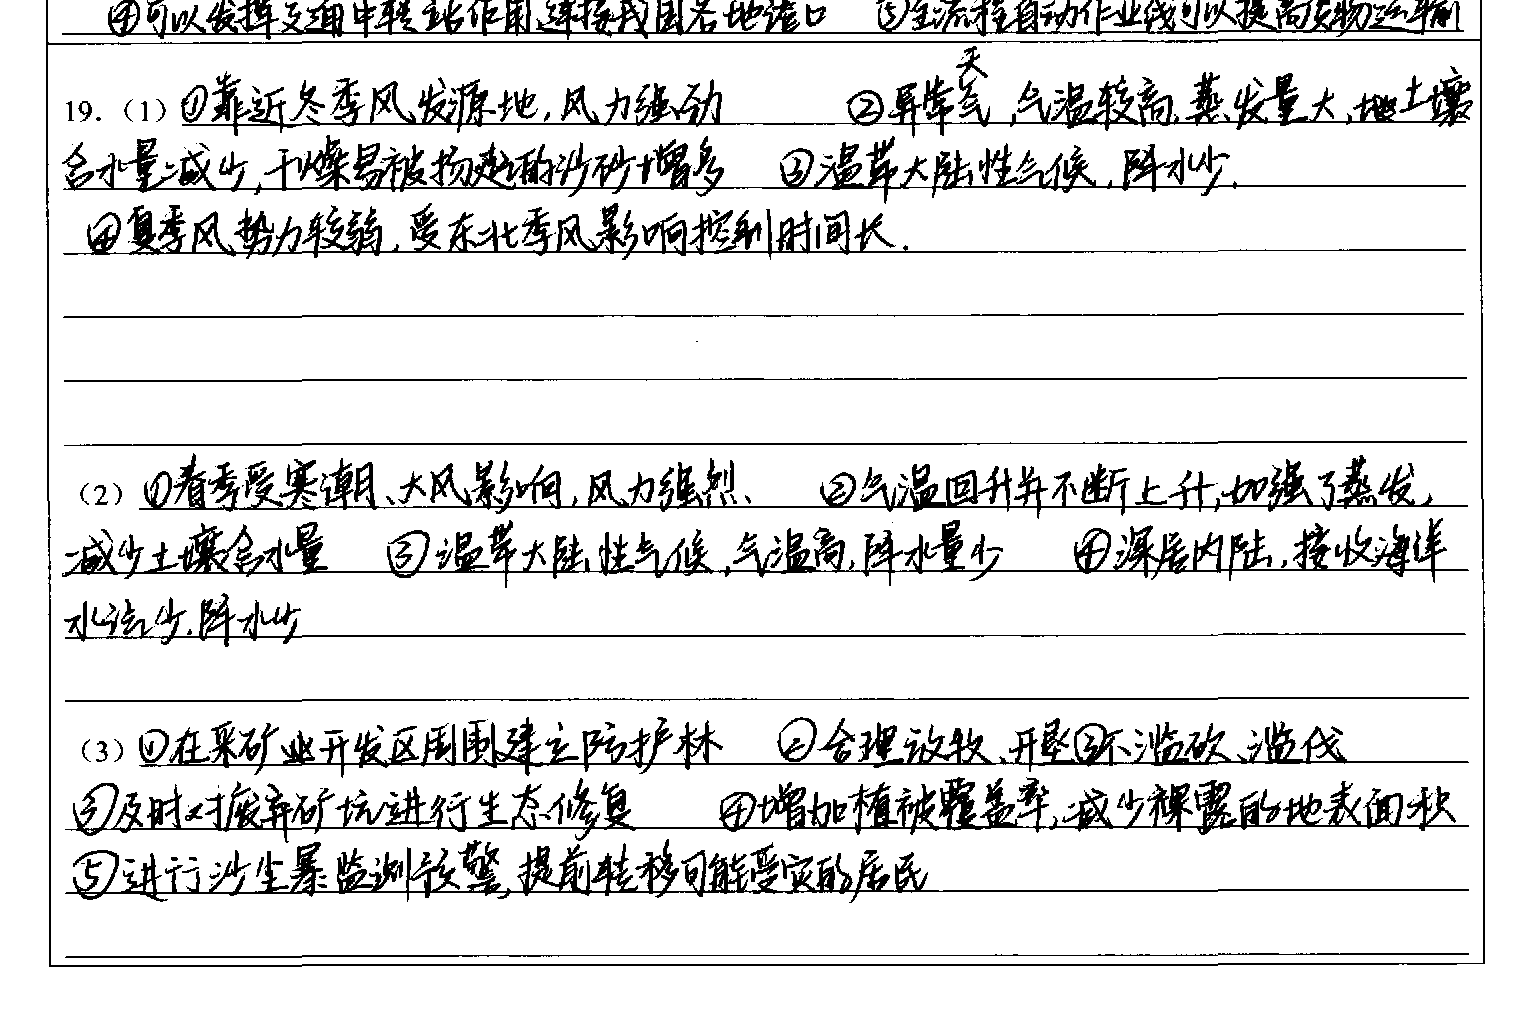 ④可以发挥交通中转站作用,连接我国各地港口 ⑤全流程自动作业线可以提高货物运输
19.(1)①靠近冬季风发源地,风力强劲 ②异常天气,气温较高,蒸发量大,地土壤
含水量减少,干燥易被扬起的沙砂增多 ③温带大陆性气候,降水少.
④夏季风势力较弱,受东北季风影响控制时间长.
(2)①春季受寒潮、大风影响,风力强烈、 ②气温回升并不断上升,加强了蒸发,
减少土壤含水量 ③温带大陆性气候,气温高,降水量少 ④深居内陆,接收海洋
水汽少.降水少
(3)①在采矿业开发区周围建立防护林 ②合理放牧、开垦③不滥砍、滥伐
③及时对废弃矿坑进行生态修复 ④增加植被覆盖率,减少裸露的地表面积
⑤进行沙尘暴监测预警,提前转移可能受灾的居民